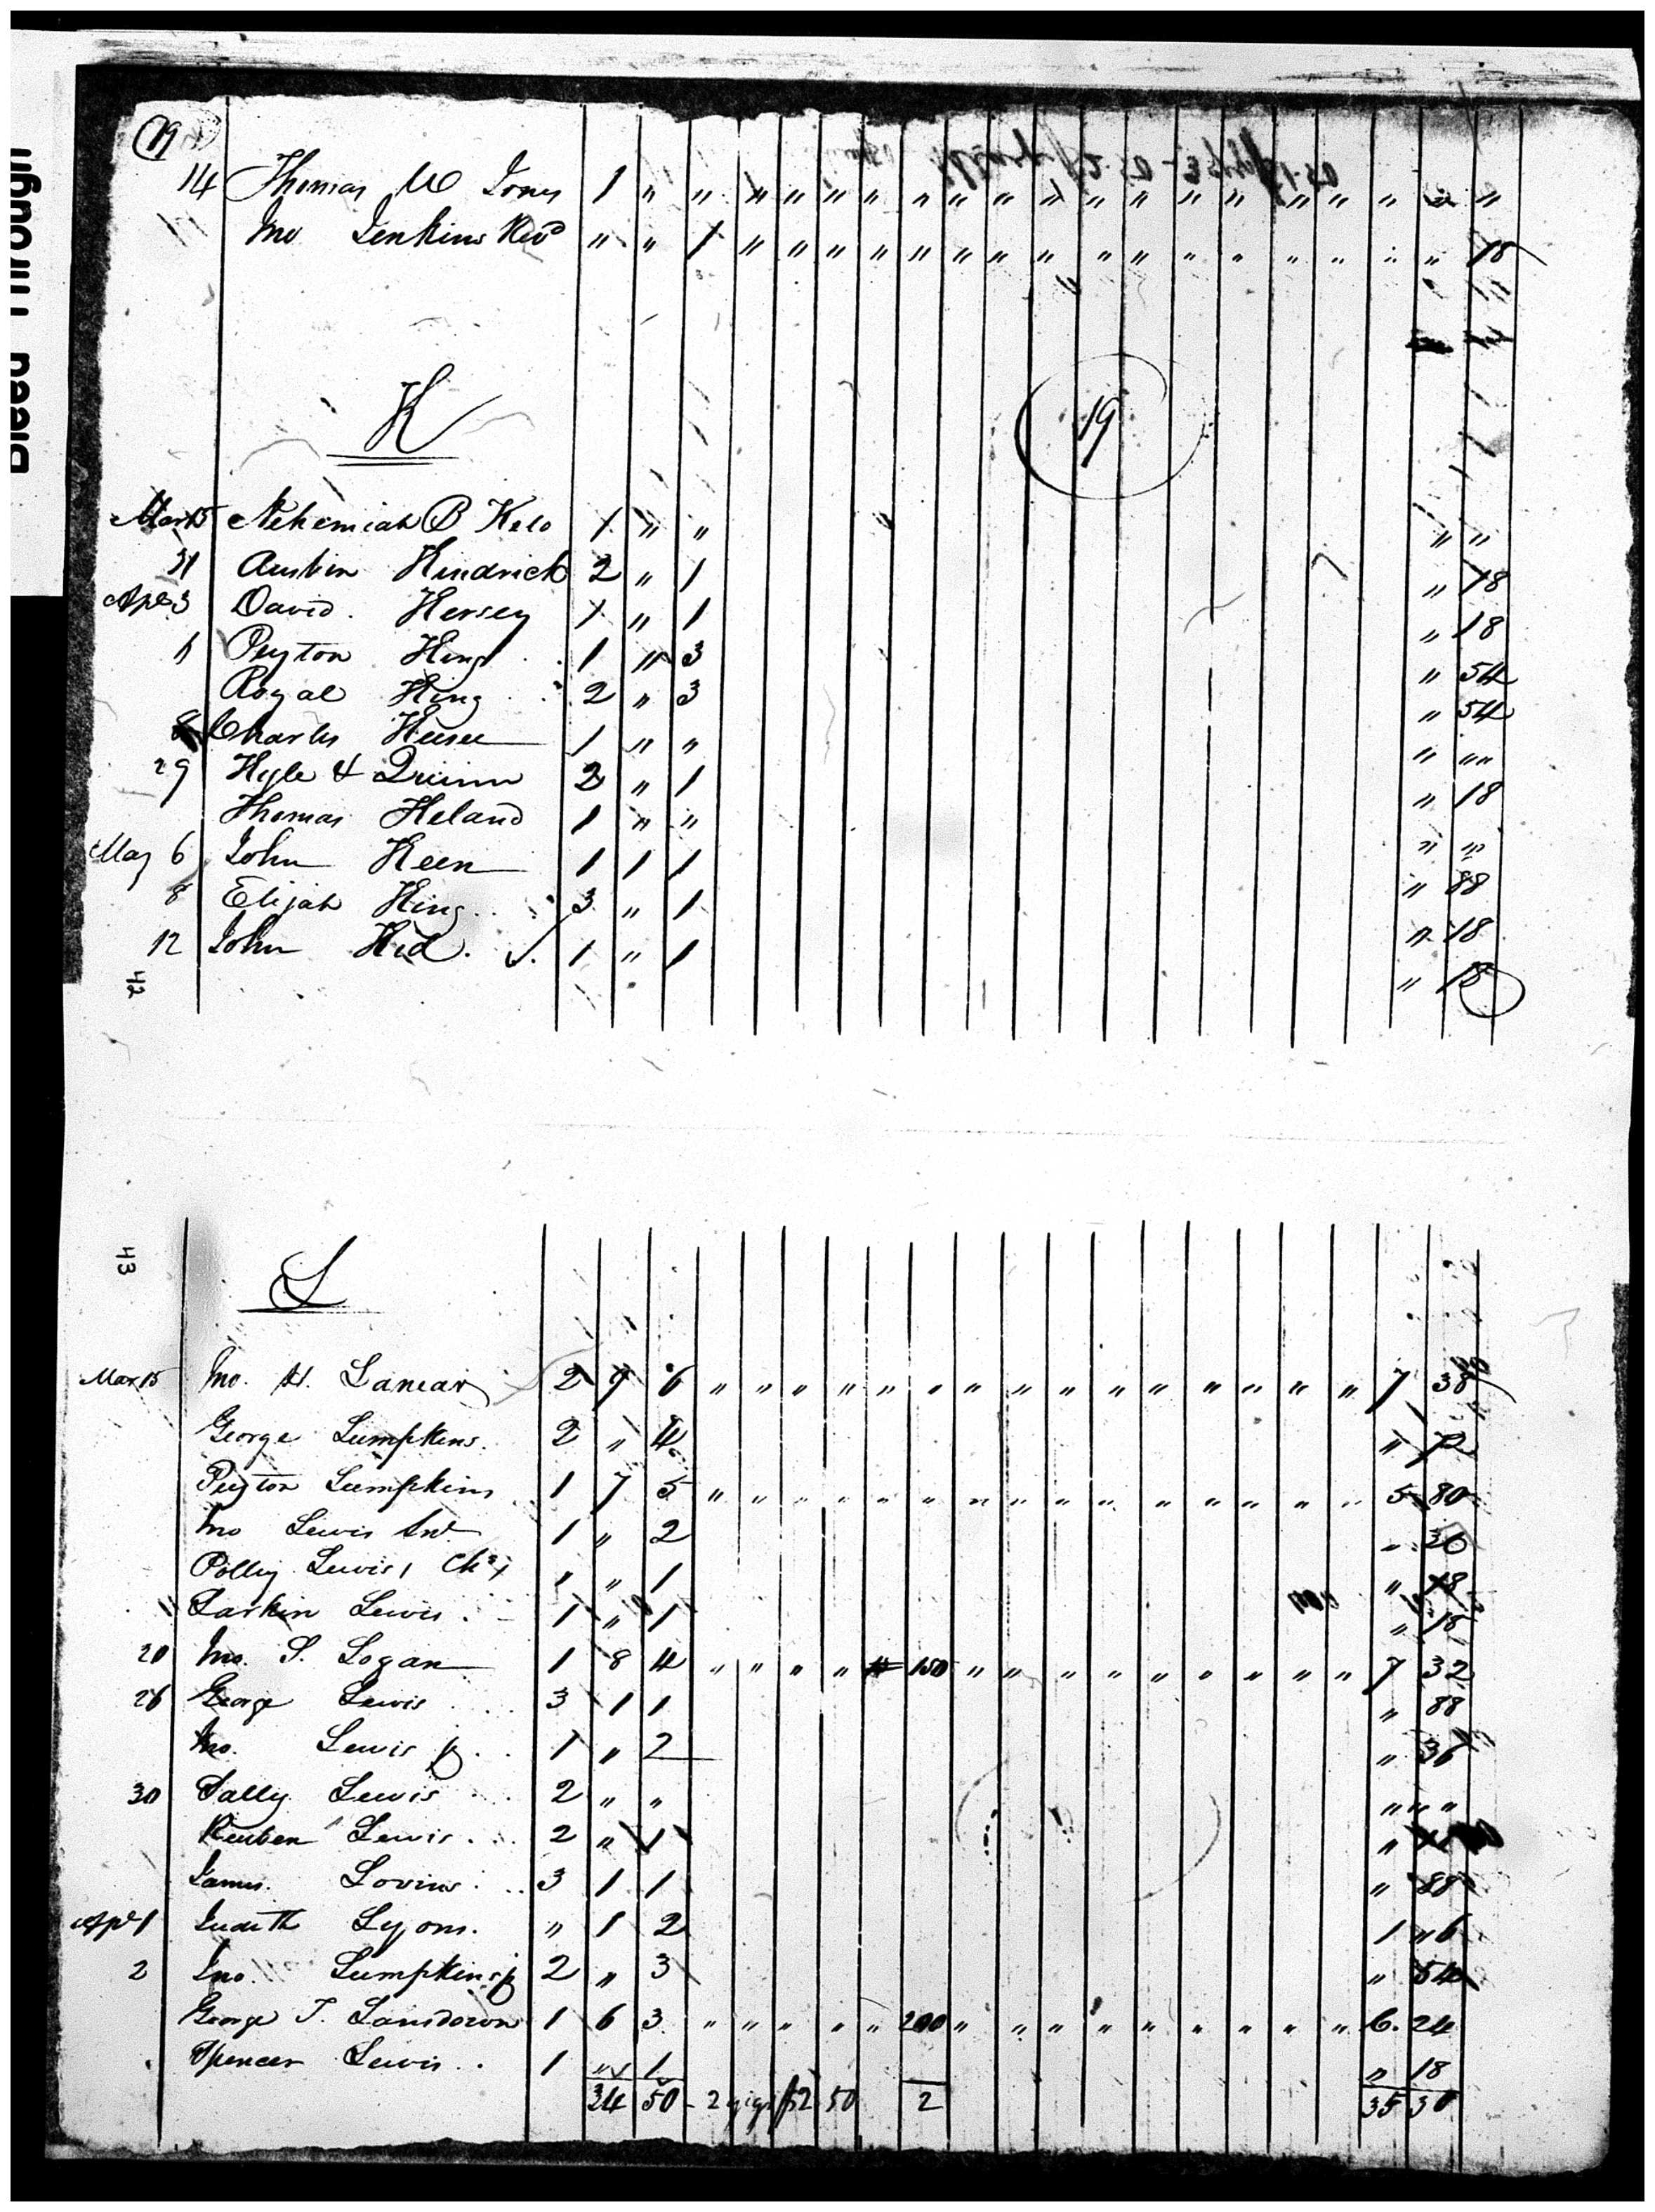 19
14 Thomas W Jones 1 " " " " " " " " " " " " " " " " " " "
Jno Jenkins Revd " " 1 " " " " " " " " " " " " " " " " 18
K
19
Mar 15 Nehemiah B Kelo 1 " " " "
31 Austin Kindrick 2 " 1 " 18
Apl 3 David Kersey 1 " 1 " 18
Peyton King 1 " 3 " 54
Royal King 2 " 3 " 54
8 Charles 1 " " " " "
29 Kyle & Quinn 2 " 1 " 18
Thomas Keland 1 " " " "
May 6 John Keen 1 1 1 " 88
8 Elijah King 3 " 1 " 18
12 John Kid 1 " 1 " 18
42
43
L
Mar 15 Jno. H. Lanear 2 9 6 " " " " " " " " " " " " " " " 7 38
George Lumpkins 2 " 4 " 72
Peyton Lumpkins 1 7 5 " " " " " " " " " " " " " " " 5 80
Jno Lewis 1 " 2 " 36
Polly Lewis " " 1 " 18
Larkin Lewis 1 " 1 " 18
20 Jno. S. Logan 1 8 4 " " " " 150 " " " " " " " " " 7 32
26 George Lewis 3 1 1 " 88
Jno. Lewis jr 1 " 2 " 36
30 Sally Lewis 2 " " " " "
Reuben Lewis 2 " 1 "
James Lovins 3 1 1 " 88
Apl 1 Judith Lyons " 1 2 1 " 6
2 Jno. Lumpkins jr 2 " 3 " 54
George T. Lansdown 1 6 3 " " " " " 200 " " " " " " " " " 6. 24
Spencer Lewis 1 " 1 " 18
34 50 - 2 gigs $ 50 2 35 30